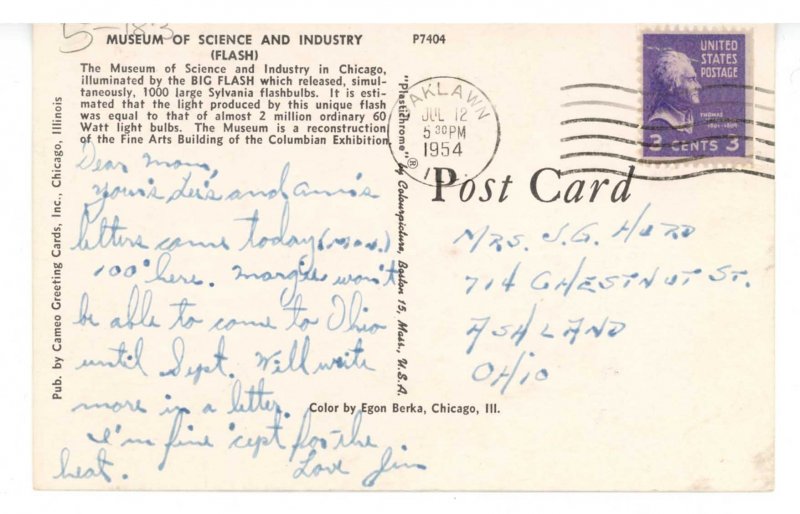 5-18-3
MUSEUM OF SCIENCE AND INDUSTRY
(FLASH)
The Museum of Science and Industry in Chicago,
illuminated by the BIG FLASH which released, simul-
taneously, 1000 large Sylvania flashbulbs. It is esti-
mated that the light produced by this unique flash
was equal to that of almost 2 million ordinary 60
Watt light bulbs. The Museum is a reconstruction
of the Fine Arts Building of the Columbian Exhibition.
Dear Mom,
Your's Lee's and Ann's
letters came today (Mon.)
100° here. Margie won't
be able to come to Ohio
until Sept. Will write
more in a letter.
I'm fine 'cept for the
heat. Love Jim
Pub. by Cameo Greeting Cards, Inc., Chicago, Illinois
P7404
"Plastichrome"® by Colourpicture, Boston 15, Mass., U.S.A.
OAKLAWN
JUL 12
5 30 PM
1954
ILL.
UNITED
STATES
POSTAGE
THOMAS
1801-1809
3 CENTS 3
Post Card
MRS. J.G. HURD
714 CHESTNUT ST.
ASHLAND
OHIO
Color by Egon Berka, Chicago, Ill.